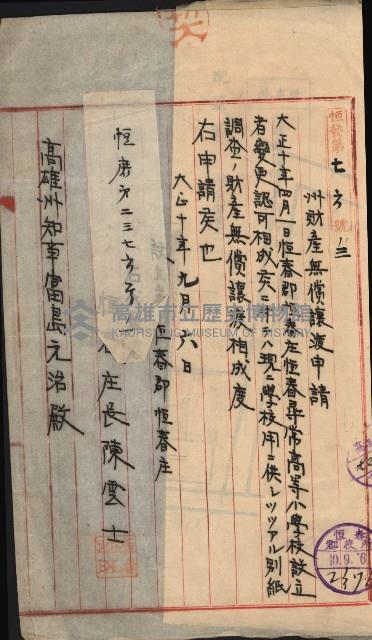 恒發第七六號ノ三
州財産無償讓渡申請
大正十年四月一日恒春郡恒春庄恒春尋常高等小學校設立
者變更認可相成候ニ付テハ現ニ學校用ニ供シツツアル別紙
調書ノ財産無償讓渡相成度
右申請候也
大正十年九月六日
恒春郡恒春庄
庄長陳雲士
高雄州知事富島元治殿
恒庶第二三七六號
恒春郡役所
10.9.6
高雄市立歷史博物館
KAOHSIUNG MUSEUM OF HISTORY